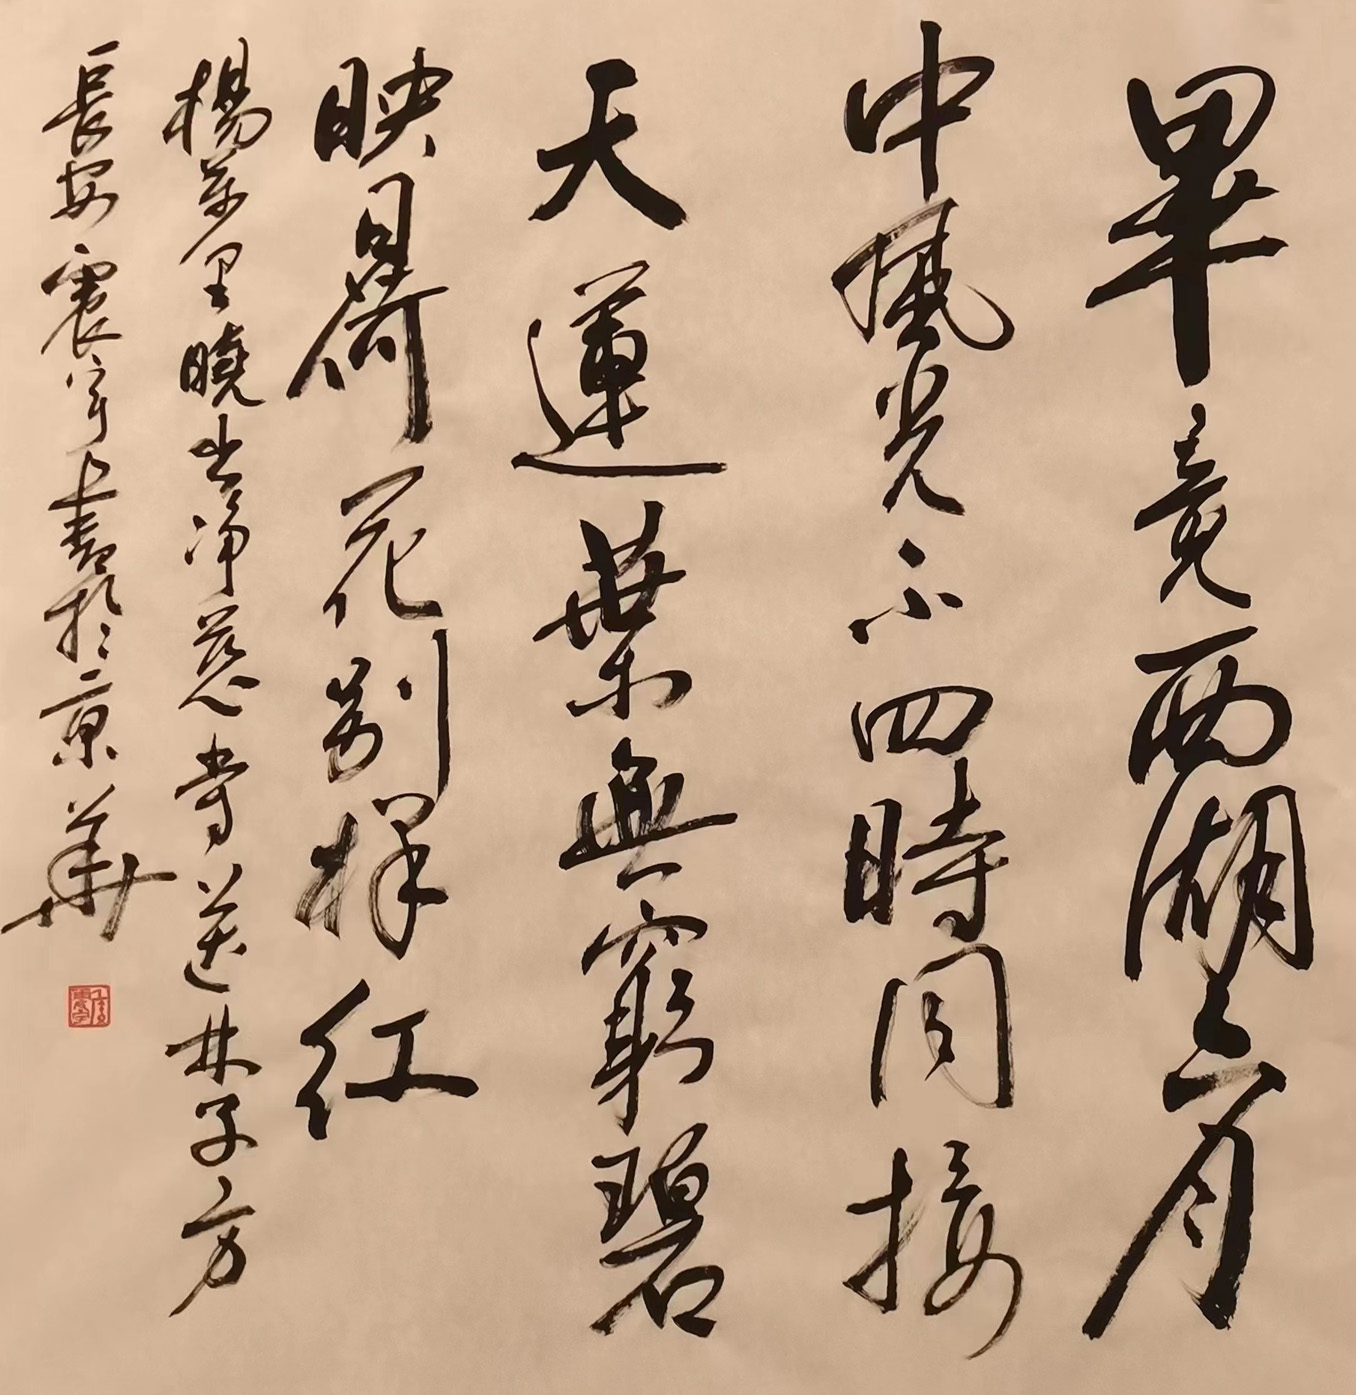 畢竟西湖六月
中風光不四時同接
天蓮葉無窮碧
映日荷花别樣紅
楊萬里曉出净慈寺送林子方
長安震宇書於京華